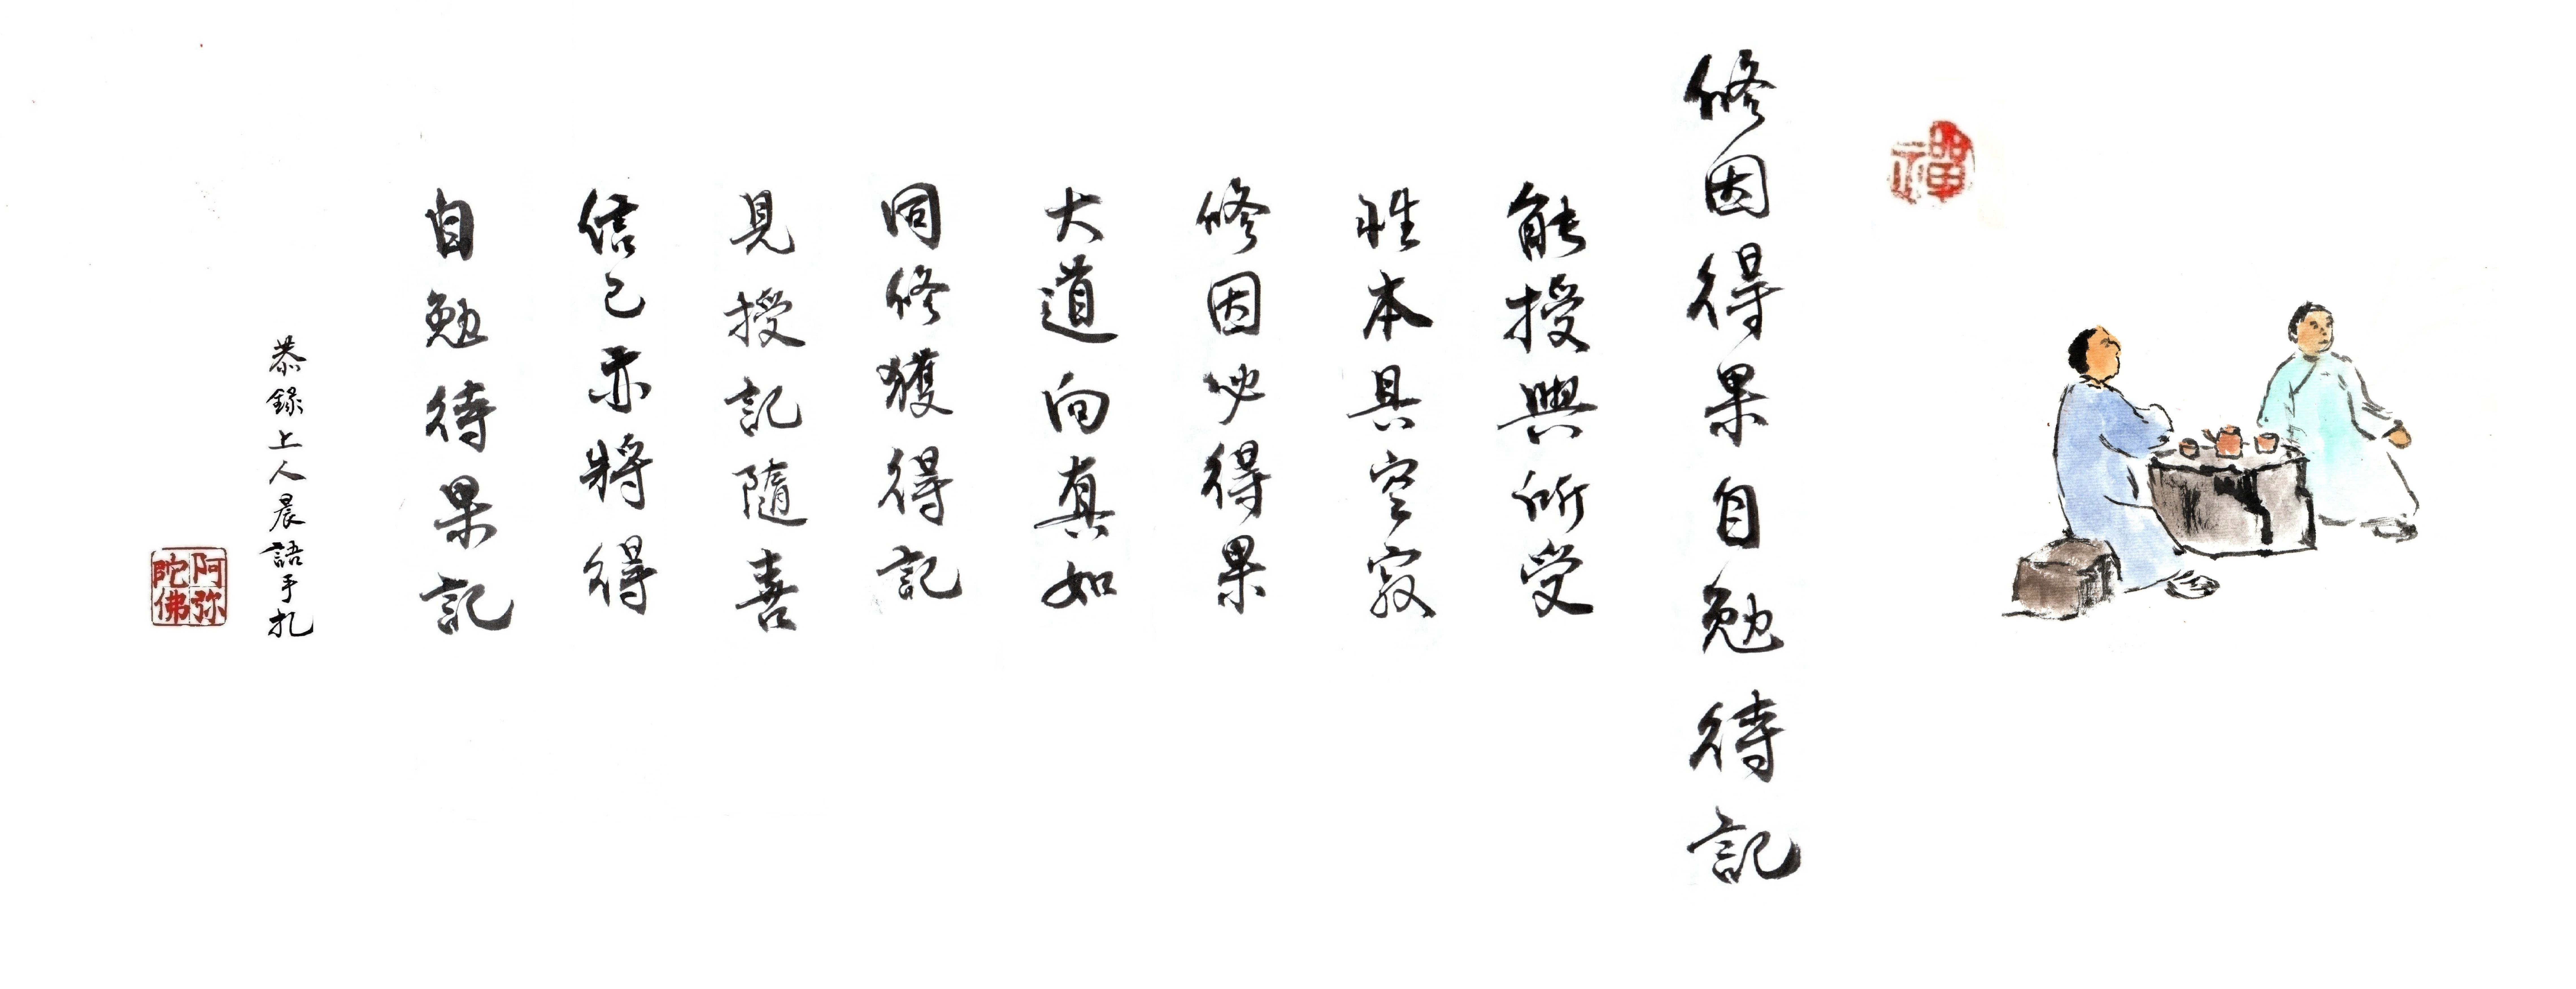 禪
修因得果自勉待記
能授與所受
性本具空寂
修因必得果
大道向真如
同修獲得記
見授記隨喜
信己亦將得
自勉待果記
恭錄上人晨語手扎
阿弥陀佛